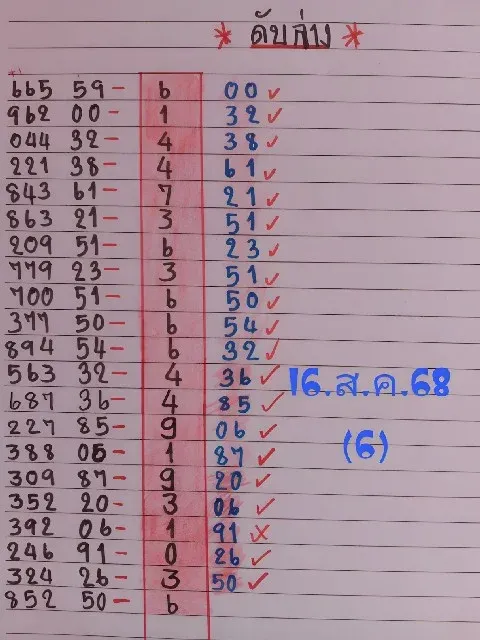 * ดับล่าง *
665 59- 6 00 ✓
962 00- 1 32 ✓
044 32- 4 38 ✓
221 38- 4 61 ✓
843 61- 7 21 ✓
863 21- 3 51 ✓
209 51- 6 23 ✓
779 23- 3 51 ✓
700 51- 6 50 ✓
377 50- 6 54 ✓
894 54- 6 32 ✓
563 32- 4 36 ✓
687 36- 4 85 ✓
227 85- 9 06 ✓
388 06- 1 87 ✓
309 87- 9 20 ✓
352 20- 3 06 ✓
392 06- 1 91 ✗
246 91- 0 26 ✓
324 26- 3 50 ✓
852 50- 6
16.ส.ค.68
(6)